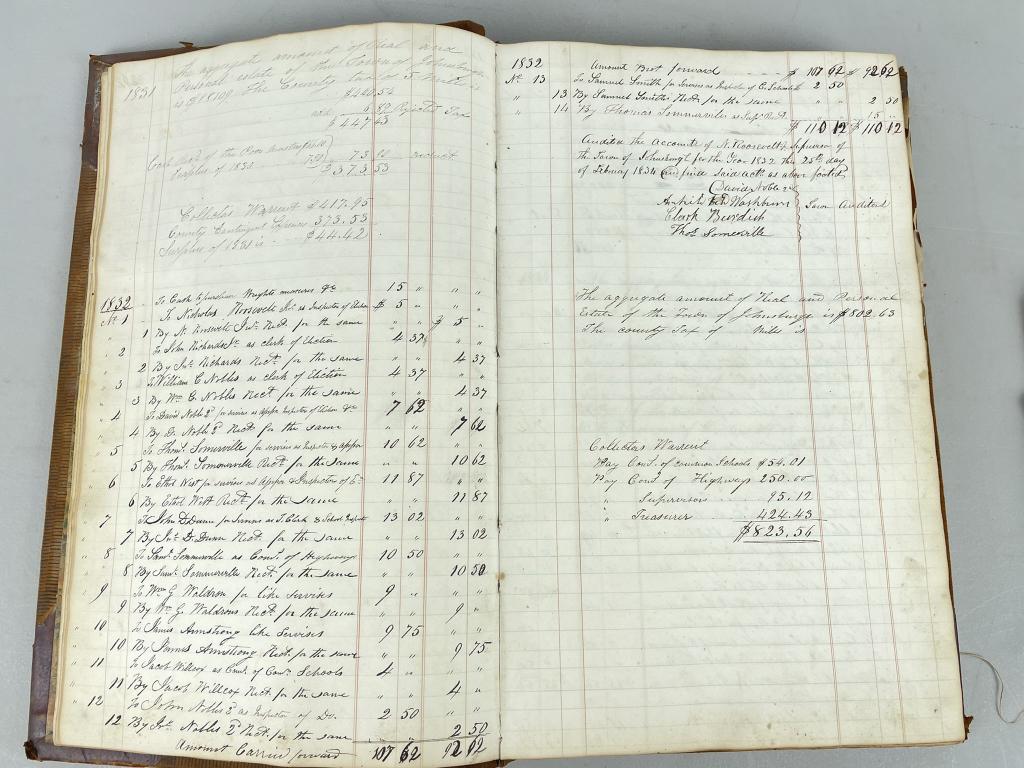 The aggregate amount of Real and
1831 Personal estate of the Town of Johnsburgh
is $18109 The County tax is 5 mills is
$440.54
add 6.89 Rejected Tax
$447.43
of the Poor
Surplus of 1830 73.90
$373.53
Collectors Warrent $417.95
County Contingent Expenses 373.53
Surplus of 1831 is $44.42
1832 To Cash to purchase Weights measures &c 15 " " "
No. 1 To Nicholas Roosevelt as Inspector of Election $ 5 " " "
1 By N. Roosevelt Rect. for the same " " $ 5 "
" 2 To John Richards Jr. as clerk of Election 4 37 " "
2 By Jno. Richards Rect. for the same " " 4 37
" 3 To William C Nobles as clerk of Election 4 37 " "
3 By Wm C. Nobles Rect. for the same " " 4 37
" 4 To David Noble 2d for services as Inspector of Election &c 7 62 " "
4 By D. Noble 2d Rect. for the same 7 62
" 5 To Thos. Somerville for services as Inspector & 10 62 " "
5 By Thos. Somerville Rect. for the same " " 10 62
" 6 To West for services as & Inspector of 11 87 " "
6 By West Rect. for the same 11 87
" 7 To John D. Dunn for Services as T. Clerk & School Inspect 13 02 " "
7 By Jno. D. Dunn Rect. for the same 13 02
" 8 To Saml. Sommerville as Com. of Highways 10 50 " "
8 By Saml. Sommerville Rect. for the same 10 50
" 9 To Wm G Waldron for like Servises 9 " " "
9 By Wm G. Waldrons Rect. for the same 9 "
" 10 To James Armstrong like Servises 9 75 " "
10 By James Armstrong Rect. for the same " " 9 75
" 11 To Jacob Willcox as Com. of Com. Schools 4 " " "
11 By Jacob Willcox Rect. for the same 4 "
" 12 To John Nobles 2d as Inspector of Do. 2 50 " "
12 By Jno. Nobles 2d Rect. for the same 2 50
Amount Carried forward 107 62 92 62
1832 Amount Brot forward $ 107 62 $ 92 62
No. 13 To Samuel Smith for Services as Inspector of C. Schools 2 50
" 13 By Samuel Smiths Rect. for the same " " 2 50
" 14 By Thomas Sommerville as 15 "
$ 110 12 $ 110 12
Audited the Accounts of N. Roosevelt Supervisor of
the Town of Johnsburgh for the Year 1832 this 25th day
of February 1834 and find said acts. as above footed
David Noble 2d
Washburn Town Auditors
Clark Burdick
Thos. Somerville
The aggregate amount of Real and Personal
Estate of the Town of Johnsburgh is $802.63
The county Tax of Mills is
Collectors Warrent
Pay Com. of common Schools $54.01
Pay Com. of Highways 250.00
" Supervisors 95.12
" Treasurer 424.43
$823.56